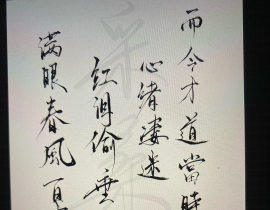 而今才道當時
心緒凄迷
紅泪偷垂
滿眼春風百